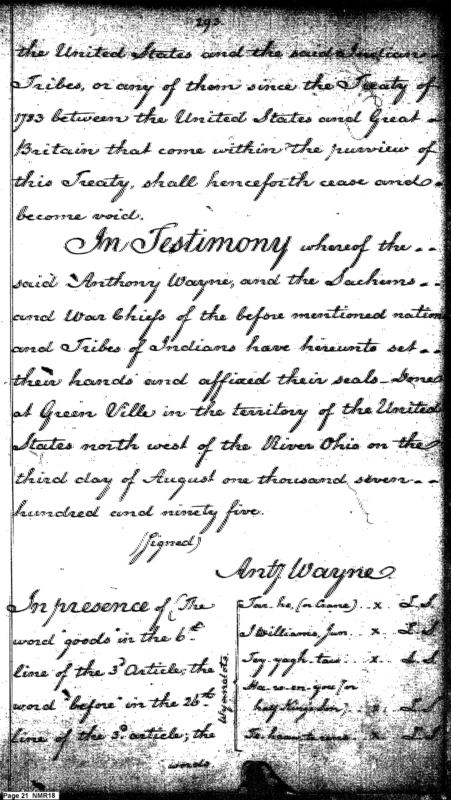 293
the United States and the said Indian
Tribes, or any of them since the Treaty of
1783 between the United States and Great
Britain that come within the purview of
this Treaty, shall henceforth cease and
become void.
In Testimony whereof the
said Anthony Wayne, and the Sachems
and War Chiefs of the before mentioned nation
and Tribes of Indians have hereunto set
their hands and affixed their seals. Done
at Green Ville in the territory of the United
States north west of the River Ohio on the
third day of August one thousand seven
hundred and ninety five.
(Signed)
Anty Wayne
In presence of (The
word "goods" in the 6th
line of the 3d Article, the
word "before" in the 26th
line of the 3d article; the
words
Wyandots
Tar-he, (or Crane) x L.S.
J Williams, Jun. x L.S.
Tey-yagh-taw x L.S.
Ha-ro-en-you (or
half King's Son) x L.S.
x L.S.
Page 21 NMR18